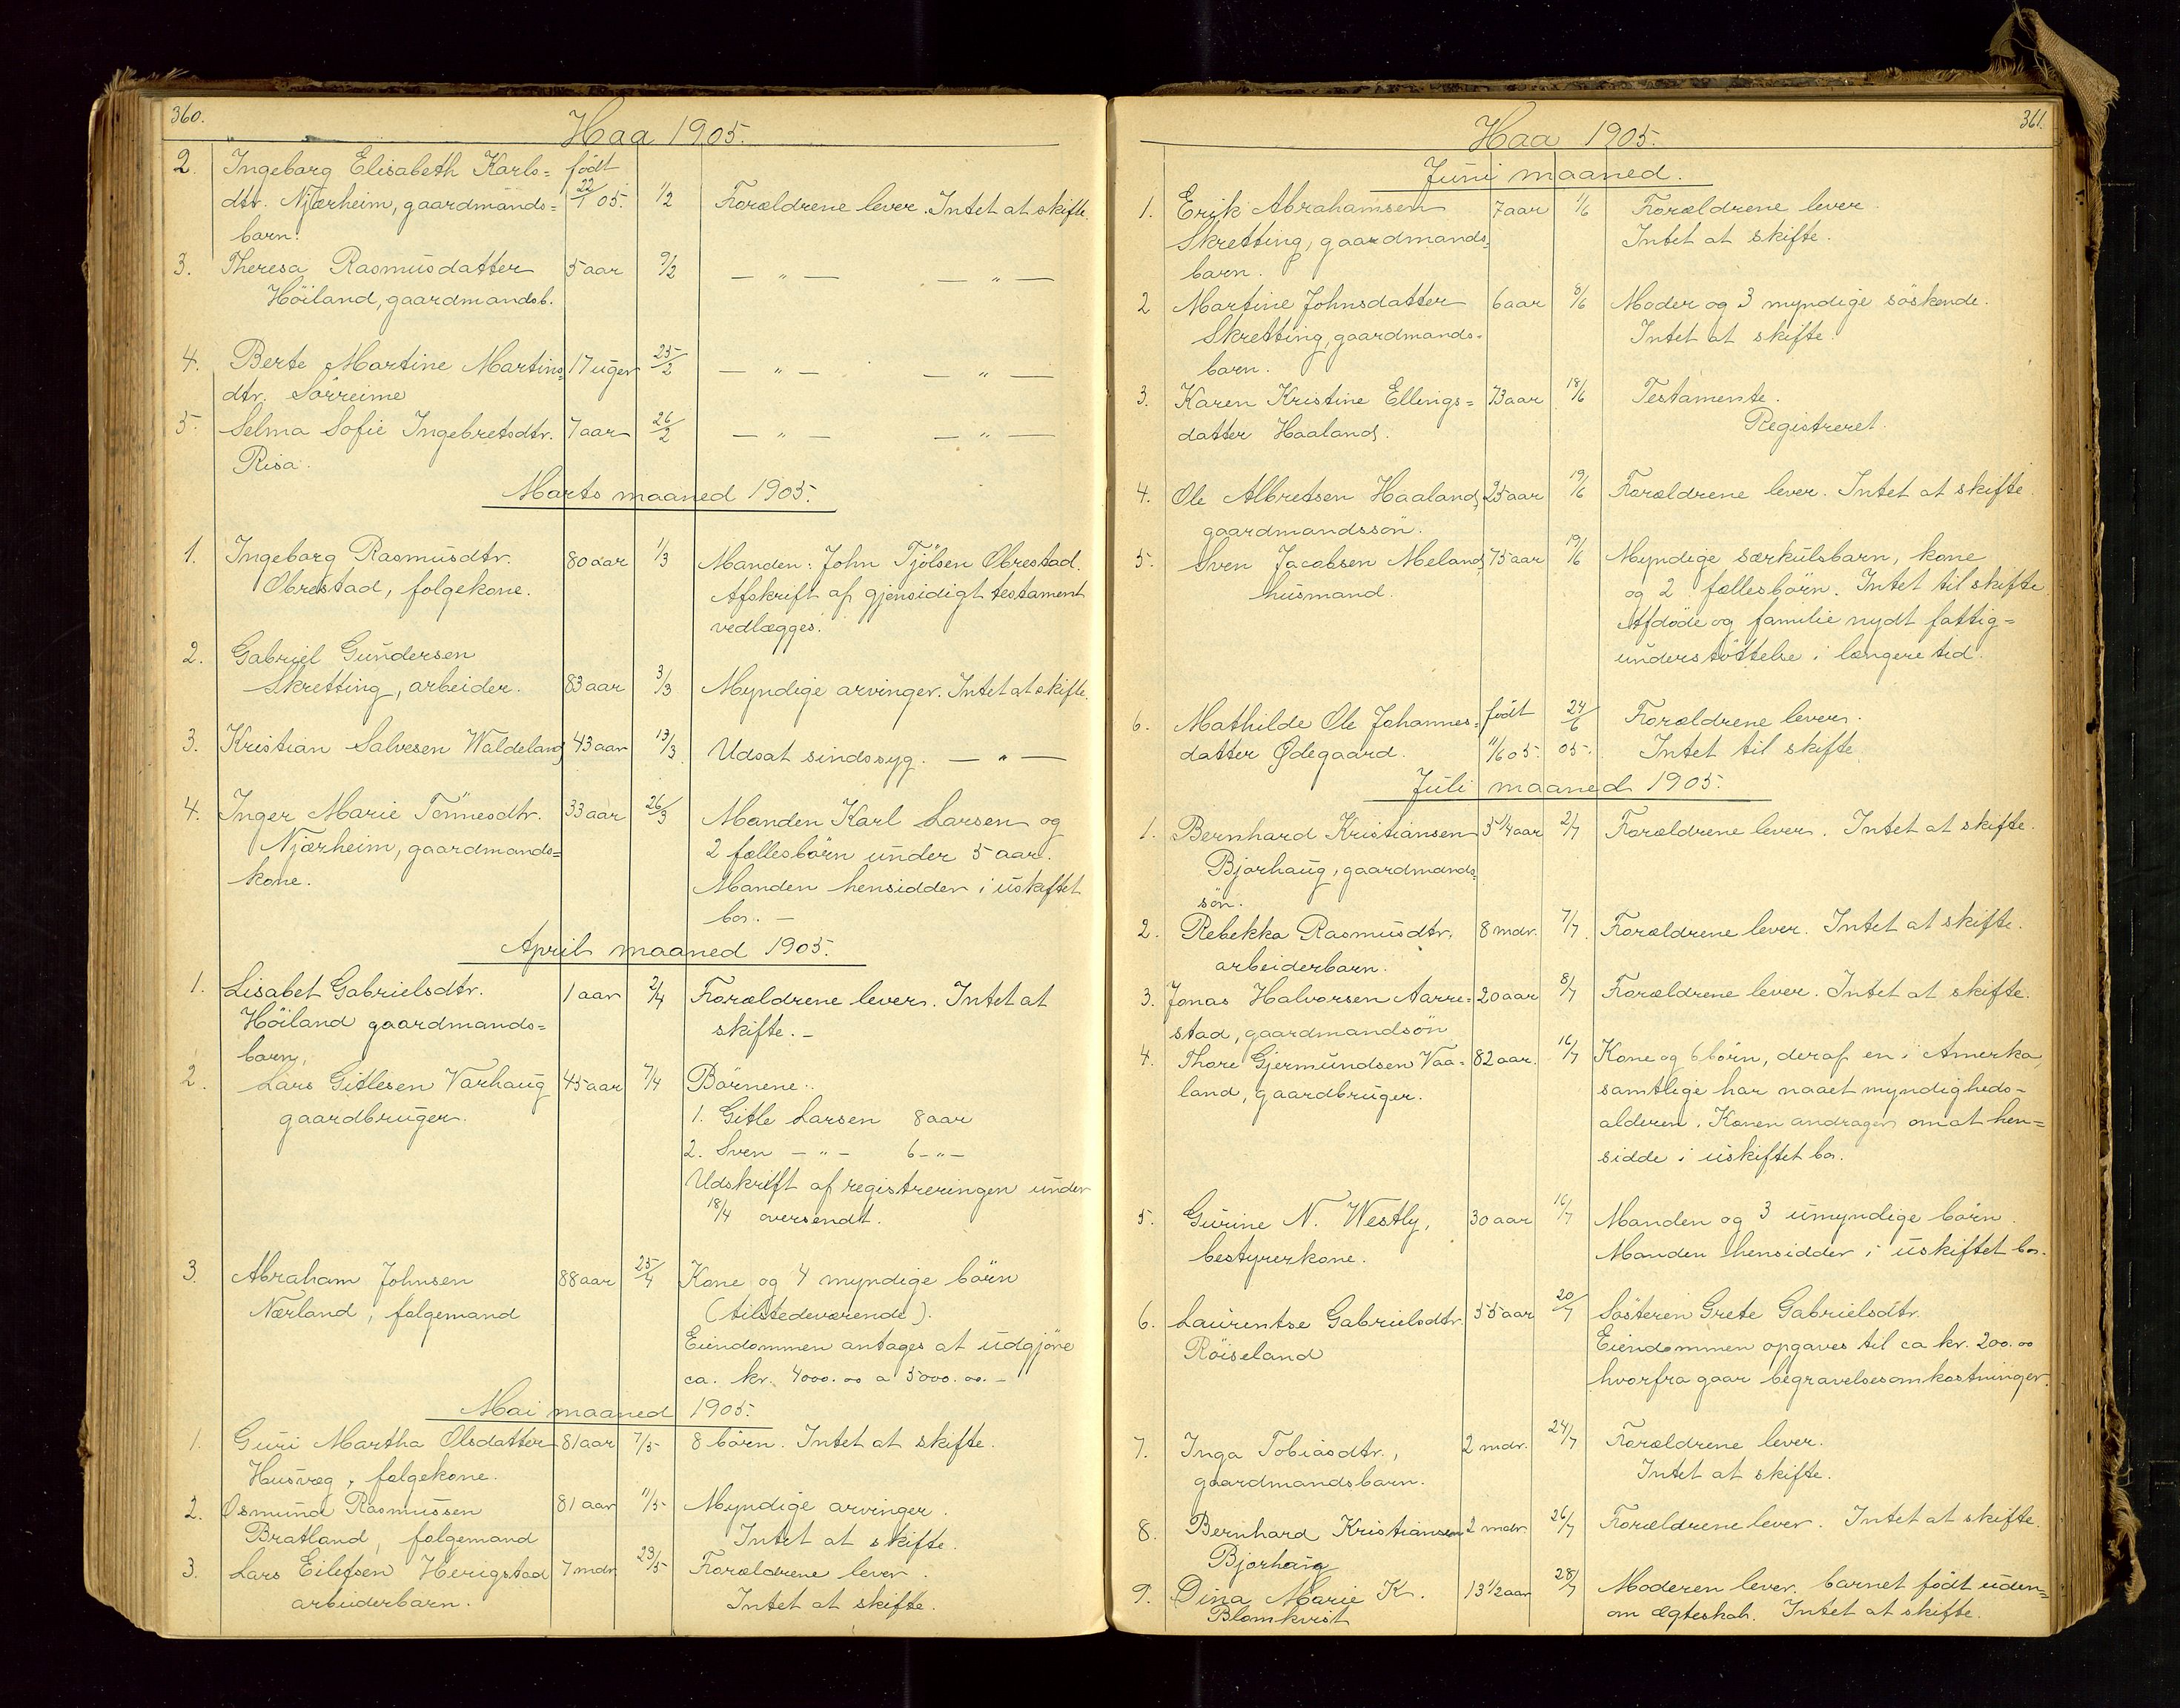 360.
Haa 1905.
2. Ingeborg Elisabeth Karls= født
dtr. Njærheim, gaardmands= 22/1 05. 1/2 Forældrene lever. Intet at skifte.
barn.
3. Theresa Rasmusdatter 5 aar 9/2 — " — — " —
Höiland, gaardmandsb.
4. Berte Martine Martins= 17 uger 25/2 — " — — " —
dtr. Sörreime
5. Selma Sofie Ingebretsdtr. 7 aar 26/2 — " — — " —
Risa.
Marts maaned 1905.
1. Ingeborg Rasmusdtr. 80 aar 1/3 Manden: John Tjölsen Obrestad.
Obrestad, folgekone. Afskrift af gjensidigt testament
vedlægges.
2. Gabriel Gundersen
Skretting, arbeider. 83 aar 3/3 Myndige arvinger. Intet at skifte.
3. Kristian Salvesen Waldeland 43 aar 13/3. Udsat sindssyg. — " —
4. Inger Marie Tönnesdtr. 33 aar 26/3 Manden Karl Larsen og
Njærheim, gaardmands= 2 fællesbörn under 5 aar.
kone. Manden hensidder i uskiftet
bo. —
April maaned 1905.
1. Lisabet Gabrielsdtr. 1 aar 2/4 Forældrene lever. Intet at
Höiland gaardmands= skifte. —
barn,
2. Lars Gitlesen Varhaug 45 aar 7/4 Börnene:
gaardbruger. 1. Gitle Larsen 8 aar
2. Sven — " — 6 — " —
Udskrift af registreringen under
18/4 oversendt.
3. Abraham Johnsen 88 aar 25/4 Kone og 4 myndige börn
Nærland, folgemand (tilstedeværende).
Eiendommen antages at udgjöre
ca. kr. 4000.00 a 5000.00. —
Mai maaned 1905.
1. Guri Martha Olsdatter 81 aar 7/5 8 börn. Intet at skifte.
Husvæg, folgekone.
2. Osmund Rasmussen 81 aar 11/5 Myndige arvinger.
Bratland, folgemand Intet at skifte.
3. Lars Eilefsen Herigstad 7 mdr. 23/5 Forældrene lever.
arbeiderbarn. Intet at skifte.
361.
Haa 1905.
Juni maaned.
1. Erik Abrahamsen 7 aar 1/6 Forældrene lever.
Skretting, gaardmands= Intet at skifte.
barn.
2 Martine Johnsdatter 6 aar 8/6 Moder og 3 myndige söskende.
Skretting, gaardmands= Intet at skifte.
barn.
3. Karen Kristine Ellings= 73 aar 18/6 Testamente.
datter Haaland. Registreret.
4. Ole Albretsen Haaland, 25 aar 19/6 Forældrene lever. Intet at skifte.
gaardmandssön.
5. Sven Jacobsen Meland, 75 aar 19/6 Myndige særkulsbarn, kone
husmand. og 2 fællesbörn. Intet til skifte.
Afdöde og familie nydt fattig=
understöttelse i længere tid.
6. Mathilde Ole Johannes= født 24/6 Forældrene lever.
datter Ødegaard. 11/6 05. 05. Intet til skifte.
Juli maaned 1905.
1. Bernhard Kristiansen 5 1/4 aar 2/7 Forældrene lever. Intet at skifte.
Bjorhaug, gaardmands=
sön.
2. Rebekka Rasmusdtr. 8 mdr. 7/7. Forældrene lever. Intet at skifte.
arbeiderbarn.
3. Jonas Halvorsen Aarre= 20 aar 8/7 Forældrene lever. Intet at skifte.
stad, gaardmandsön
4. Thore Gjermundsen Vaa= 82 aar. 16/7 Kone og 6 börn, deraf en i Amerka,
land, gaardbruger. samtlige har naaet myndigheds=
alderen. Konen andrager om at hen=
sidde i uskiftet bo.
5. Gurine N. Westly, 30 aar 16/7 Manden og 3 umyndige börn.
bestyrerkone. Manden hensidder i uskiftet bo.
6. Laurentse Gabrielsdtr. 55 aar 20/7 Sösteren Grete Gabrielsdtr.
Röiseland Eiendommen opgaves til ca kr. 200.00
hvorfra gaar begravelsesomkostninger.
7. Inga Tobiasdtr., 2 mdr. 24/7 Forældrene lever.
gaardmandsbarn. Intet at skifte.
8. Bernhard Kristiansen 2 mdr. 26/7 Forældrene lever. Intet at skifte.
Bjorhaug
9. Dina Marie K. 13 1/2 aar 28/7 Moderen lever. barnet født uden=
Blomkvist om ægteskab. Intet at skifte.